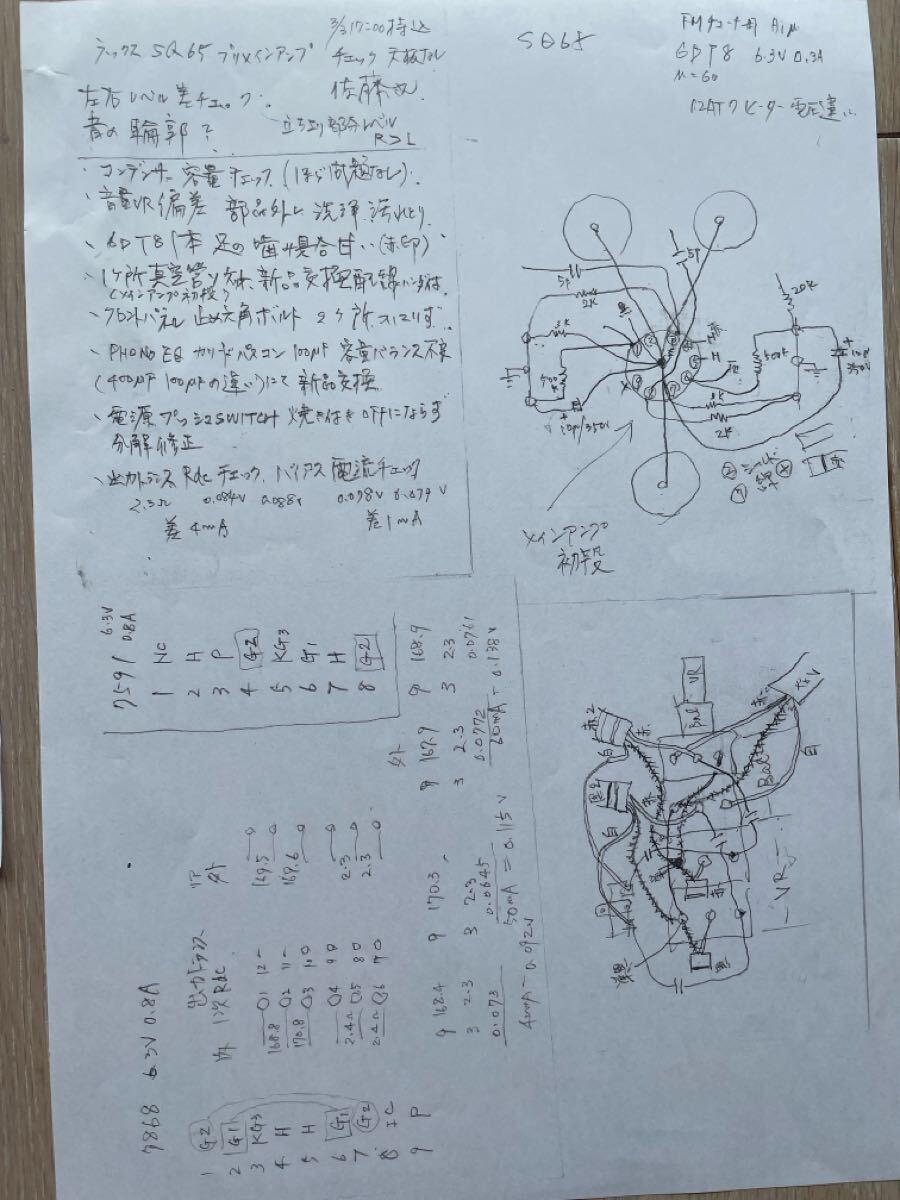 ラックス SQ65 プリメインアンプ
3/3 17:00 持込
チェック 天板なし
佐藤
左右レベル差チェック.
音の輪郭?
立ち上り部分レベル
R>L
・コンデンサー容量チェック(ほぼ問題なし).
・音量VR偏差 部品外し 洗浄 汚れとり
・6DT8 1本 足の噛み具合甘い(赤印)
・1ヶ所真空管ソケット新品交換配線ハンダ付
(メインアンプ初段)
・フロントパネル 止め六角ボルト 2ヶ所
・PHONO EQ カソードパスコン 100μF 容量バランス不良
(400μF 100μFの違い)にて新品交換
・電源プッシュSWITCH 焼き付き OFFにならず
分解修正
・出力トランス Rdc チェック. バイアス電流チェック
2.3Ω 0.084V 0.088V 0.078V 0.079V
差4mA 差1mA
SQ65
FMチューナー用
6DT8 6.3V 0.3A
μ=60
12AT7 ヒーター電圧違い
5p
5p
2K
黒
20K
500K
10μ/350V
10μ
350V
2K
メインアンプ
初段
7591 6.3V
0.8A
1 NC
2 H
3 P
4 G2
5 KG3
6 G1
7 H
8 G2
7868 6.3V 0.8A
1 G2
2 G1
3 KG3
4 H
5 H
6 G1
7 G2
8 IC
9 P
出力トランス
1次 Rdc
168.8
170.8
2.4Ω
2.4Ω
169.5
169.6
2.3
2.3
9 168.4
3 2.3
0.073
9 170.3
3 2.3
0.0645
50mA = 0.115V
40mA - 0.092V
9 167.9
3 2.3
0.0772
9 168.9
3 2.3
0.0761
60mA - 0.138V
VR
Bal
赤
白
VR